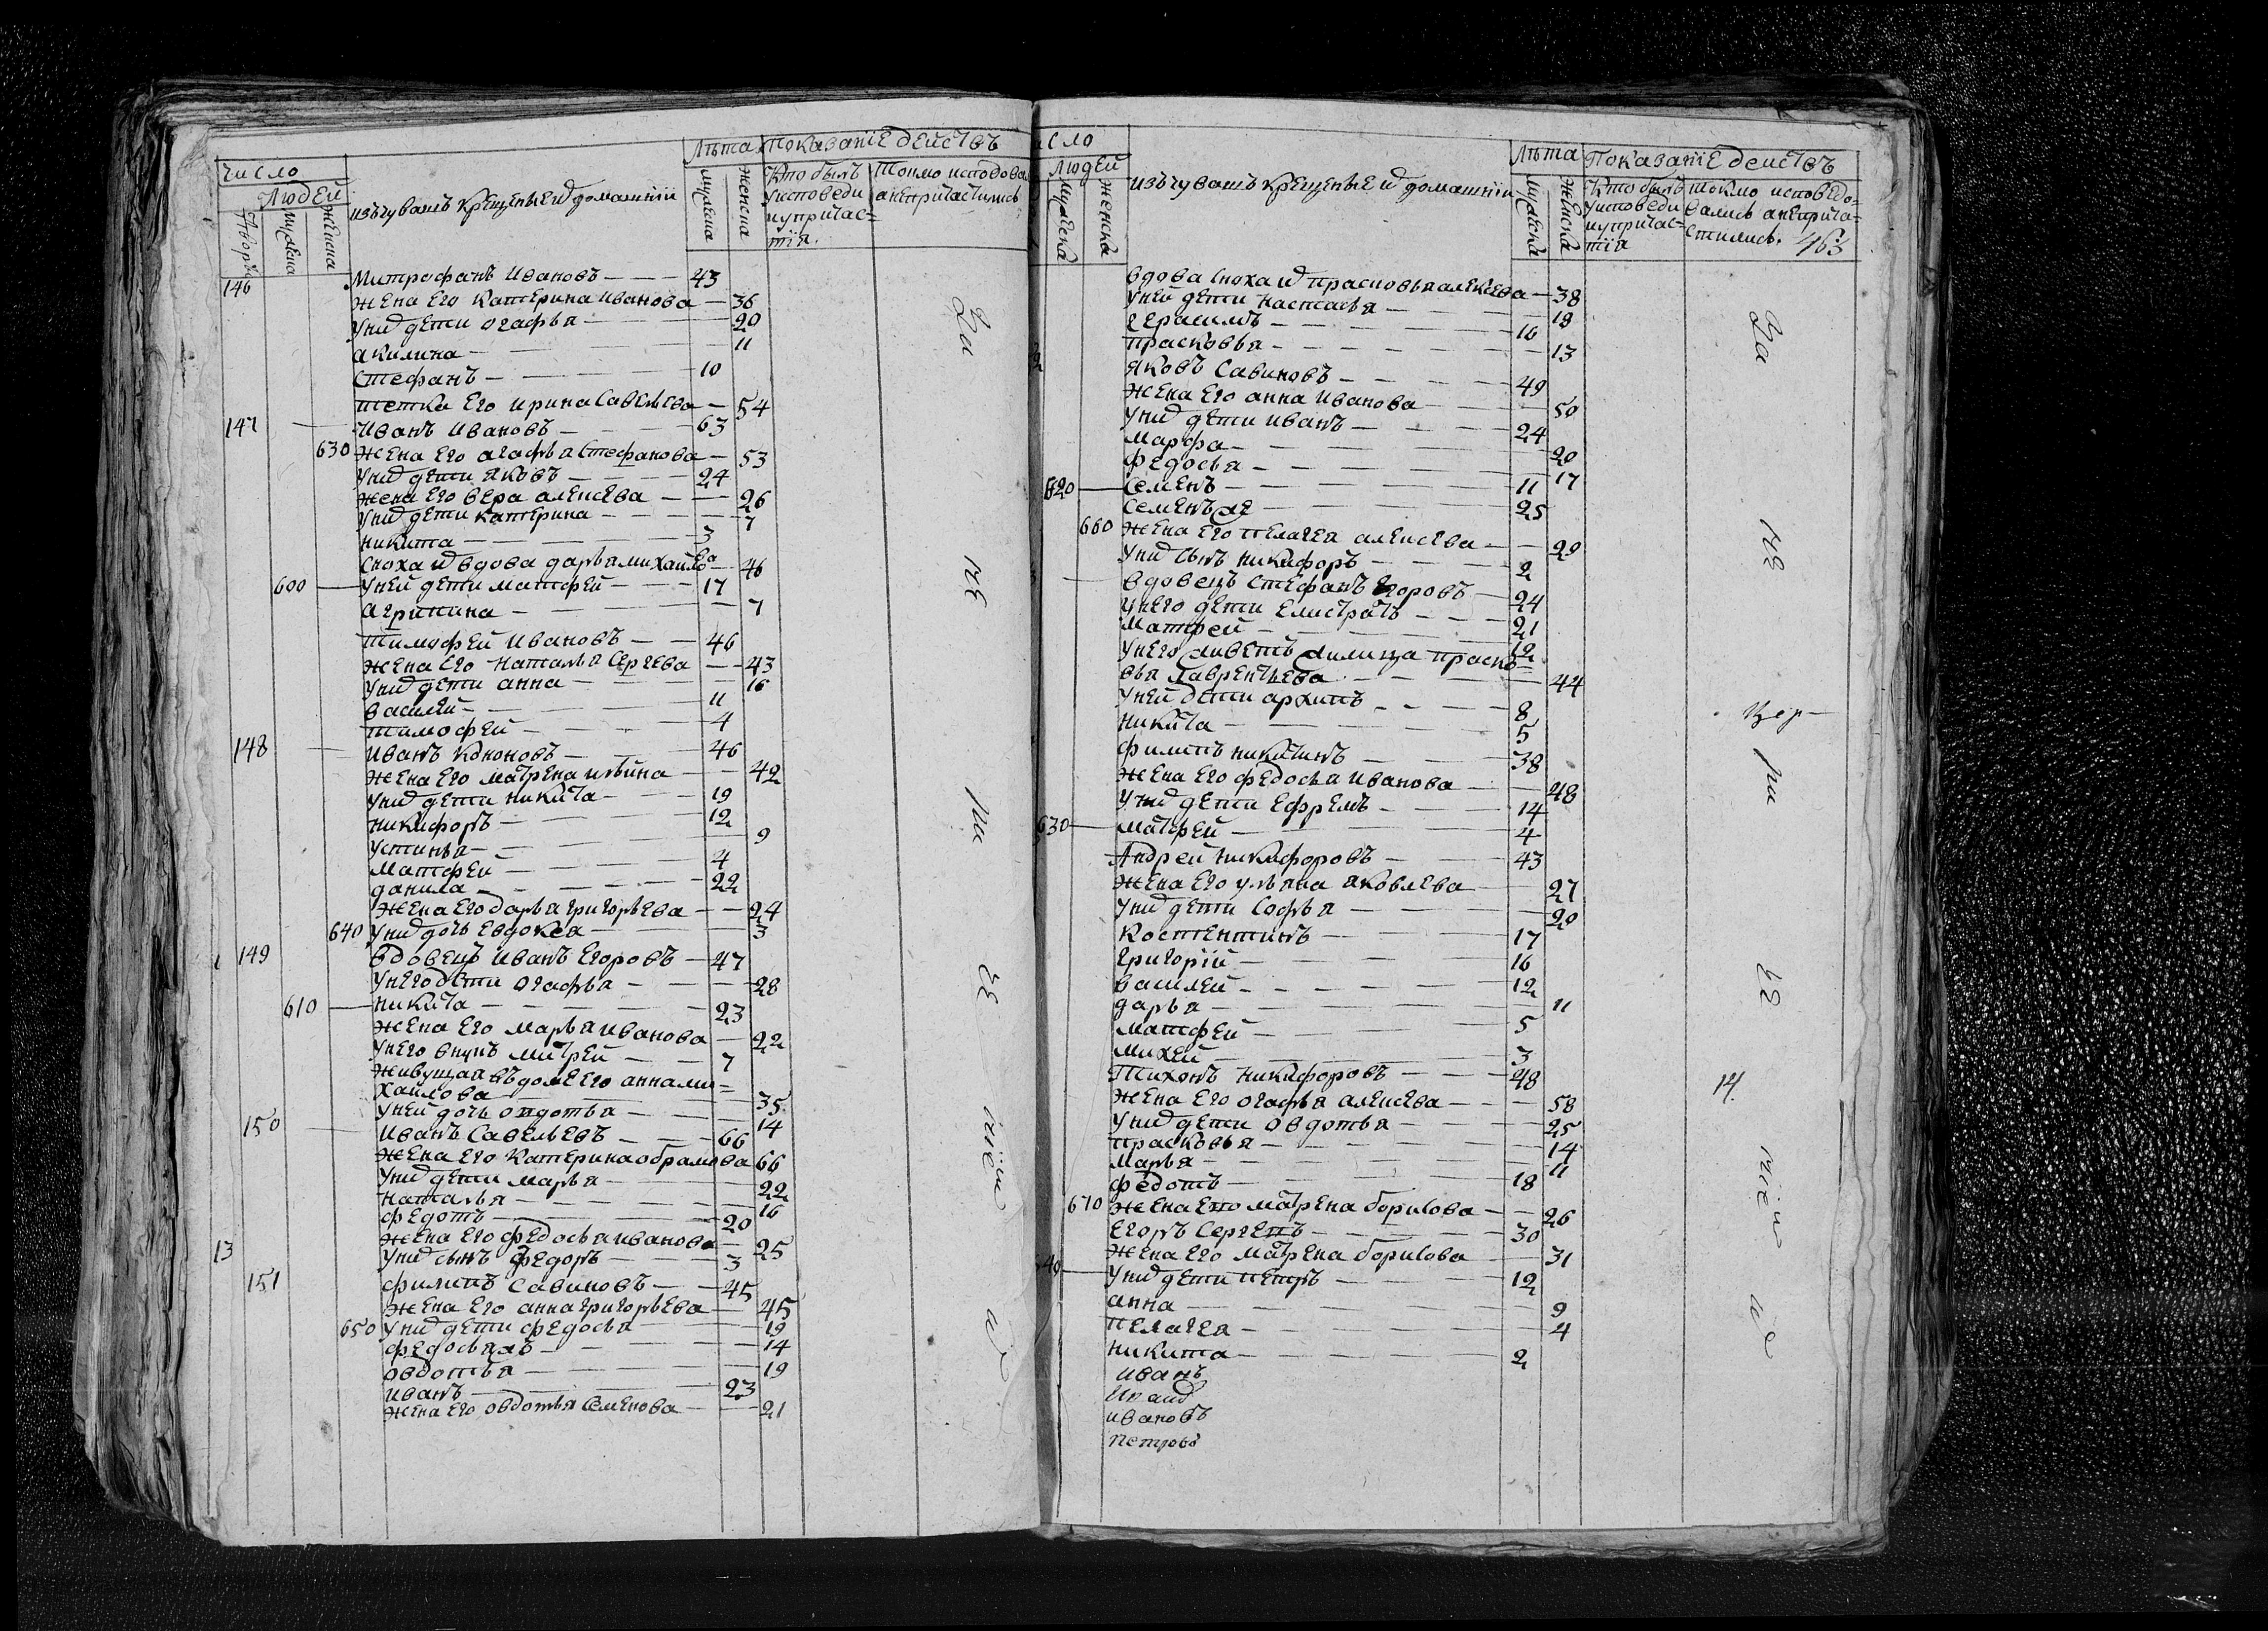 число
Людей
Дворъ
мужеска
женска
изъ чувашъ крещеные и домашнiи
Лѣта
мужеска
женска
Показанiе действъ
Кто былъ у исповеди и у причастiя.
Токмо исповедова а непричастились
146 Митрофанъ Ивановъ — 43
жена его катерина иванова — 36
у них дети огафья — 20
акилина — 11
стефанъ — 10
тетка его ирина Савельева — 54
147 Иванъ Ивановъ — 63
630 жена его агафья Стефанова — 53
у них дети яковъ — 24
жена его вера алексева — 26
у них дети катерина — 7
никита — 3
сноха их вдова дарья михайлова — 46
600 — у ней дети матфей — 17
агрипина — 7
тимофей ивановъ — 46
жена его наталья Сергева — 43
у них дети анна — 16
василей — 11
тимофей — 4
148 иванъ кононовъ — 46
жена его матрена ильина — 42
у них дети никита — 19
никифоръ — 12
устинья — 9
матфей — 4
данила — 22
жена его дарья григорьева — 24
640 у них дочь евдокея — 3
149 вдовецъ иванъ егоровъ — 47
у него дети огафья — 28
610 — никита — 23
жена его марья иванова — 22
у него внукъ митрей — 7
живущая въ доме его анна ми=
хайлова — 35
у ней дочь овдотья — 14
150 иванъ Савельевъ — 66
жена его катерина обрамова 66
у них дети марья — 22
наталья — 16
федотъ — 20
жена его федосья иванова — 25
13 у них сынъ федоръ — 3
151 филипъ Савиновъ — 45
жена его анна григорьева — 45
650 у них дети федосья — 19
федосья жъ — 14
овдотья — 19
иванъ — 23
жена его овдотья семенова — 21
исло
Людей
мужеска
женска
изъ чувашъ крещеные и домашнiи
Лѣта
мужеска
женска
Показанiе действъ
Кто былъ у исповеди и у причастiя
токмо исповедо=
вались а неприча=
стились.
463
вдова сноха их прасковья алексева — 38
у ней дети настасья — 19
герасимъ — 16
прасковья — 13
яковъ Савиновъ — 49
жена его анна иванова — 50
у них дети иванъ — 24
марфа — 20
федосья — 17
620 — семенъ — 11
семенъ же — 25
660 жена его пелагея алексева — 29
у них сынъ никифоръ — 2
вдовецъ стефанъ егоровъ — 24
у него дети елистратъ — 21
матфей — 12
у него живетъ прасков=
вья лаврентьева — 44
у ней дети архипъ — 8
никита — 5
филипъ никитинъ — 38
жена его федосья иванова — 48
у них дети ефремъ — 14
630 — матфей — 4
Андрей никифоровъ — 43
жена его ульяна яковлева — 27
у них дети софья — 20
костентинъ — 17
григорiй — 16
василей — 12
дарья — 11
матфей — 5
михей — 3
тихонъ никифоровъ — 48
жена его огафья алексева — 58
у них дети овдотья — 25
прасковья — 14
марья — 11
федотъ — 18
670 жена ево матрена борисова — 26
егоръ Сергеевъ — 30
жена его матрена борисова — 31
у них дети петръ — 12
анна — 9
пелагея — 4
никита — 2
иванъ
ивановъ
петровъ
14
За
не
За
не